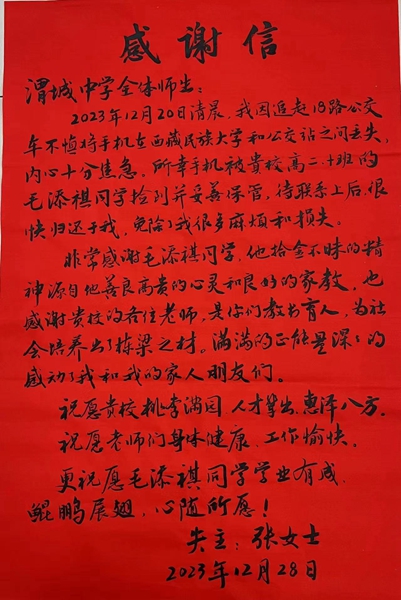 感谢信
渭城中学全体师生：
2023年12月20日清晨，我因追赶18路公交
车不慎将手机在西藏民族大学和公交站之间丢失，
内心十分焦急。所幸手机被贵校高二.十班的
毛添祺同学捡到并妥善保管，待联系上后，很
快归还于我，免除了我很多麻烦和损失。
非常感谢毛添祺同学，他拾金不昧的精
神源自他善良高贵的心灵和良好的家教，也
感谢贵校的各位老师，是你们教书育人，为社
会培养出了栋梁之材。满满的正能量深深的
感动了我和我的家人朋友们。
祝愿贵校桃李满园，人才辈出，惠泽八方。
祝愿老师们身体健康，工作愉快。
更祝愿毛添祺同学学业有成，
鲲鹏展翅，心随所愿！
失主：张女士
2023年12月28日